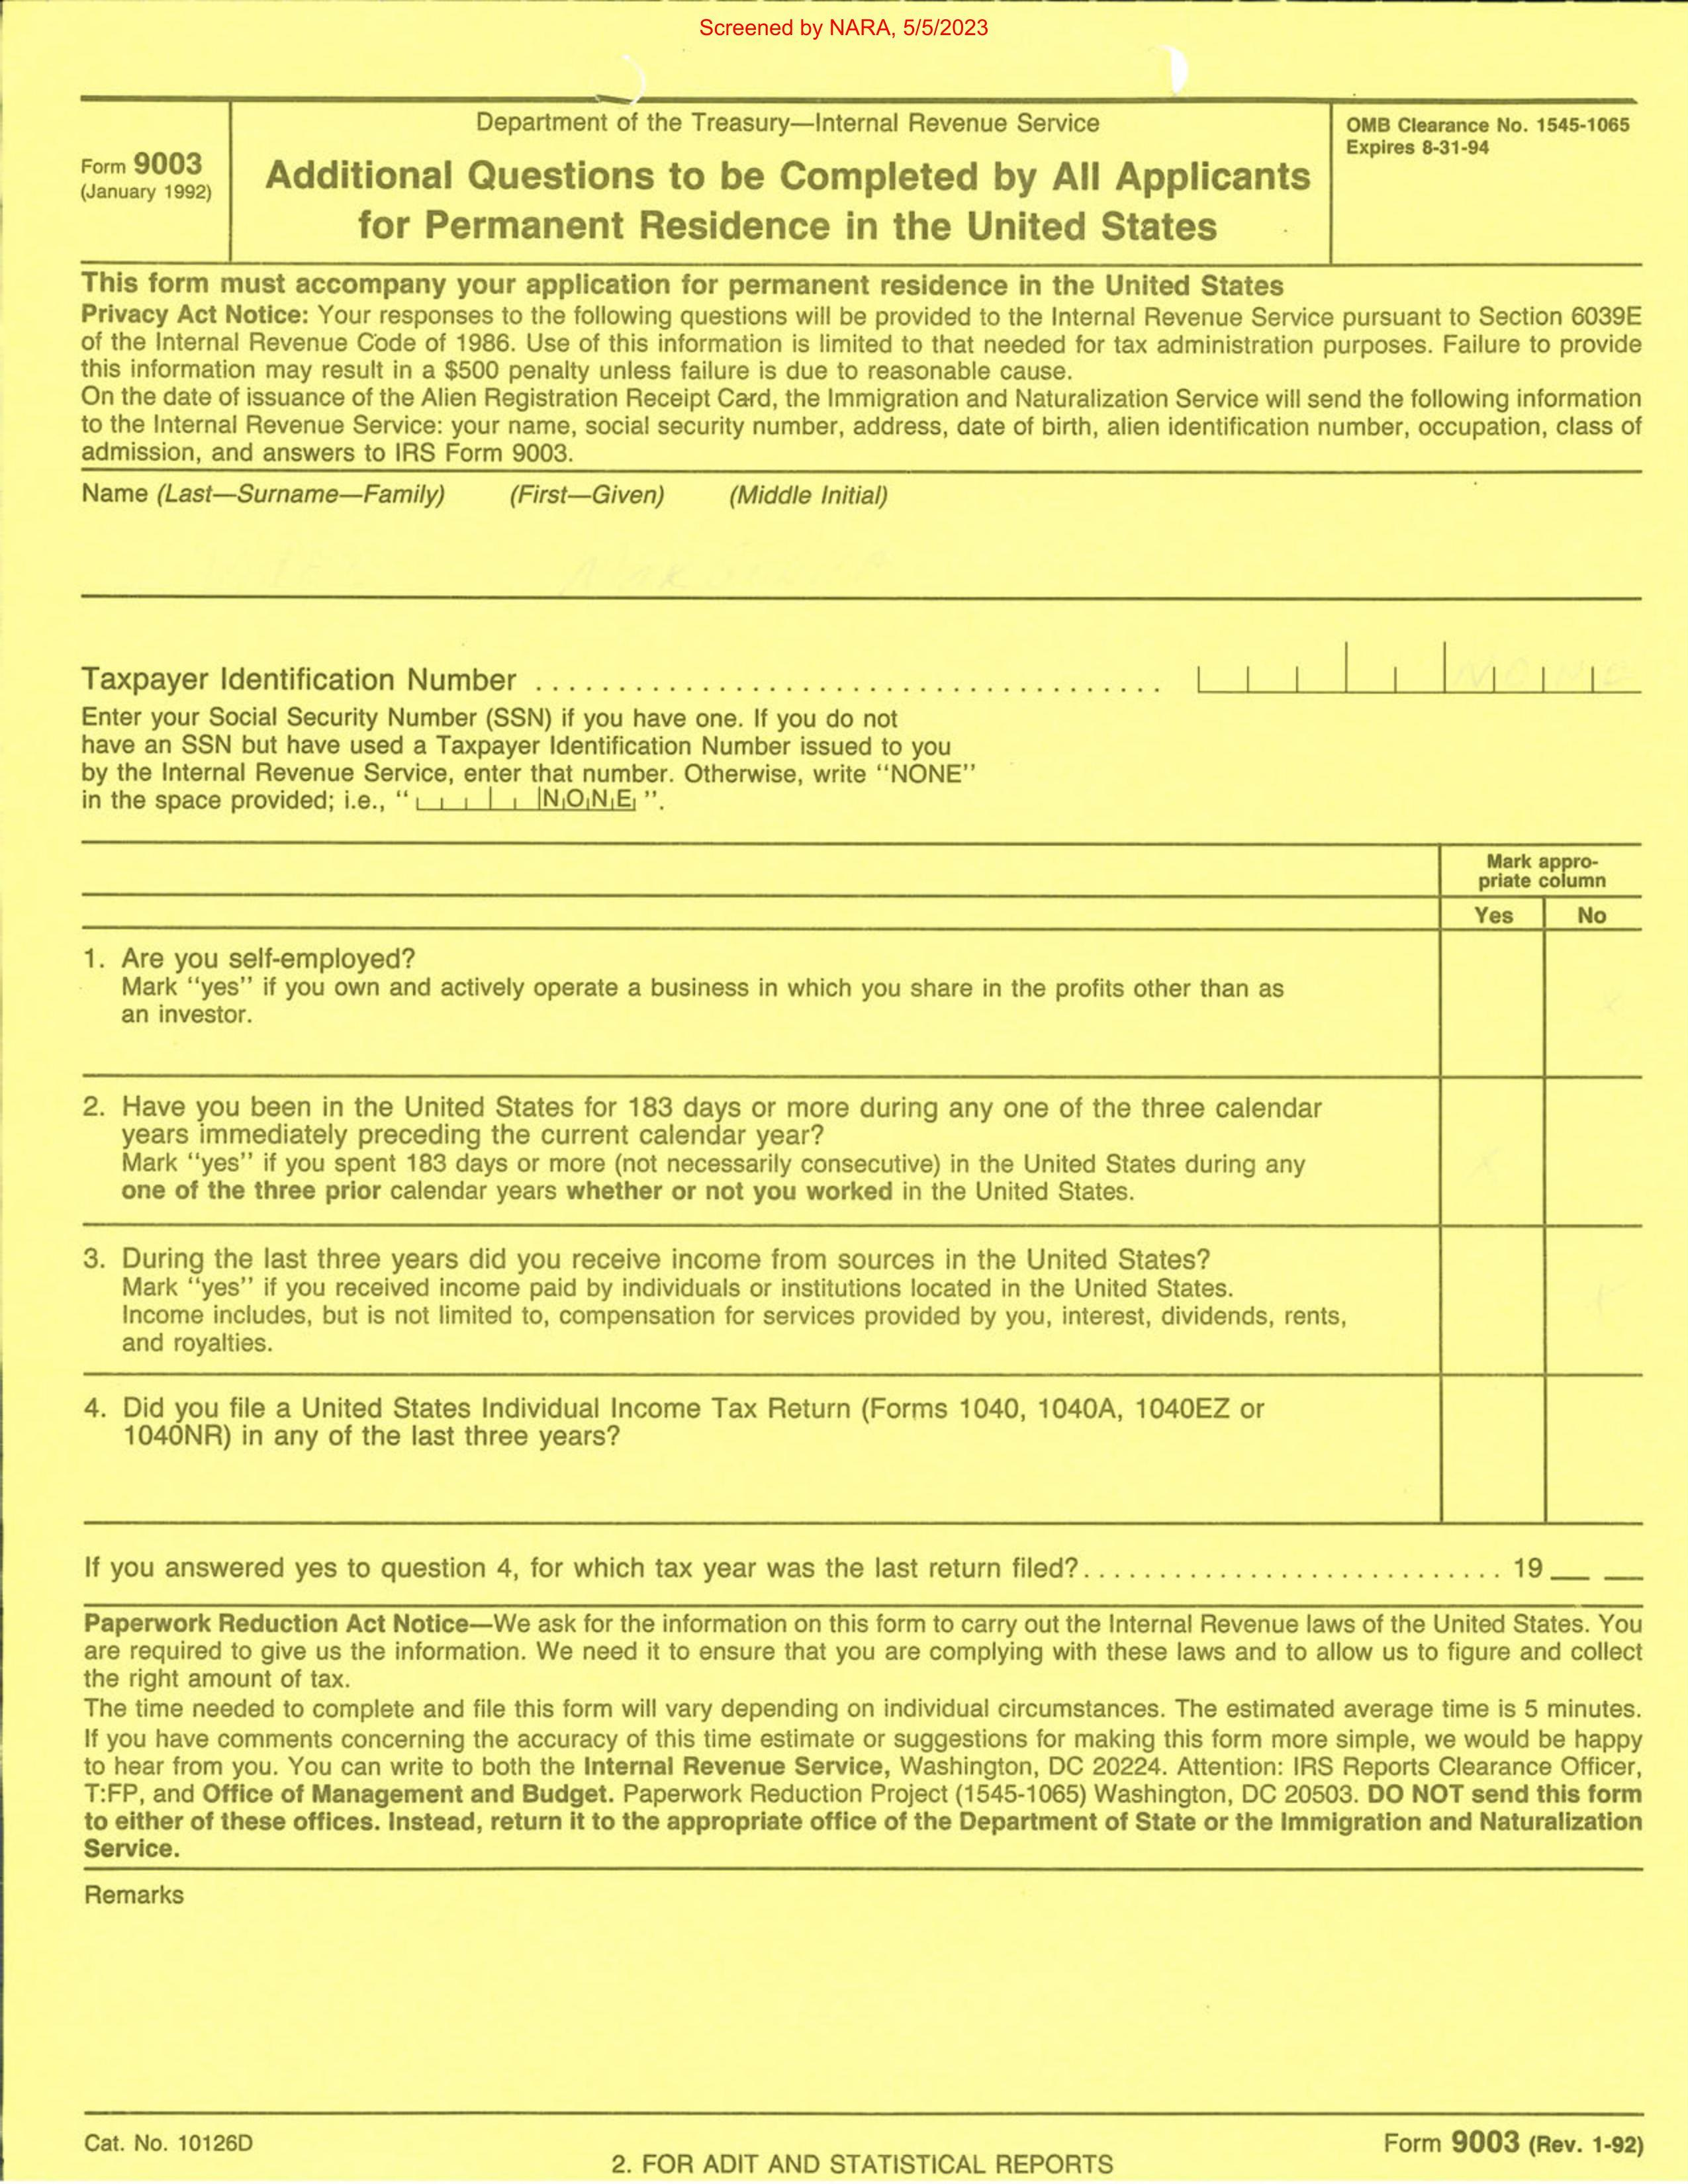 Screened by NARA, 5/5/2023
Form 9003
(January 1992)
Department of the Treasury—Internal Revenue Service
Additional Questions to be Completed by All Applicants
for Permanent Residence in the United States
OMB Clearance No. 1545-1065
Expires 8-31-94
This form must accompany your application for permanent residence in the United States
Privacy Act Notice: Your responses to the following questions will be provided to the Internal Revenue Service pursuant to Section 6039E
of the Internal Revenue Code of 1986. Use of this information is limited to that needed for tax administration purposes. Failure to provide
this information may result in a $500 penalty unless failure is due to reasonable cause.
On the date of issuance of the Alien Registration Receipt Card, the Immigration and Naturalization Service will send the following information
to the Internal Revenue Service: your name, social security number, address, date of birth, alien identification number, occupation, class of
admission, and answers to IRS Form 9003.
Name (Last—Surname—Family) (First—Given) (Middle Initial)
Taxpayer Identification Number ...................................... NONE
Enter your Social Security Number (SSN) if you have one. If you do not
have an SSN but have used a Taxpayer Identification Number issued to you
by the Internal Revenue Service, enter that number. Otherwise, write "NONE"
in the space provided; i.e., " NONE ".
Mark appro-
priate column
Yes No
1. Are you self-employed?
Mark "yes" if you own and actively operate a business in which you share in the profits other than as
an investor. X
2. Have you been in the United States for 183 days or more during any one of the three calendar
years immediately preceding the current calendar year?
Mark "yes" if you spent 183 days or more (not necessarily consecutive) in the United States during any X
one of the three prior calendar years whether or not you worked in the United States.
3. During the last three years did you receive income from sources in the United States?
Mark "yes" if you received income paid by individuals or institutions located in the United States.
Income includes, but is not limited to, compensation for services provided by you, interest, dividends, rents,
and royalties.
4. Did you file a United States Individual Income Tax Return (Forms 1040, 1040A, 1040EZ or
1040NR) in any of the last three years?
If you answered yes to question 4, for which tax year was the last return filed?.......................... 19__ __
Paperwork Reduction Act Notice—We ask for the information on this form to carry out the Internal Revenue laws of the United States. You
are required to give us the information. We need it to ensure that you are complying with these laws and to allow us to figure and collect
the right amount of tax.
The time needed to complete and file this form will vary depending on individual circumstances. The estimated average time is 5 minutes.
If you have comments concerning the accuracy of this time estimate or suggestions for making this form more simple, we would be happy
to hear from you. You can write to both the Internal Revenue Service, Washington, DC 20224. Attention: IRS Reports Clearance Officer,
T:FP, and Office of Management and Budget. Paperwork Reduction Project (1545-1065) Washington, DC 20503. DO NOT send this form
to either of these offices. Instead, return it to the appropriate office of the Department of State or the Immigration and Naturalization
Service.
Remarks
Cat. No. 10126D
Form 9003 (Rev. 1-92)
2. FOR ADIT AND STATISTICAL REPORTS